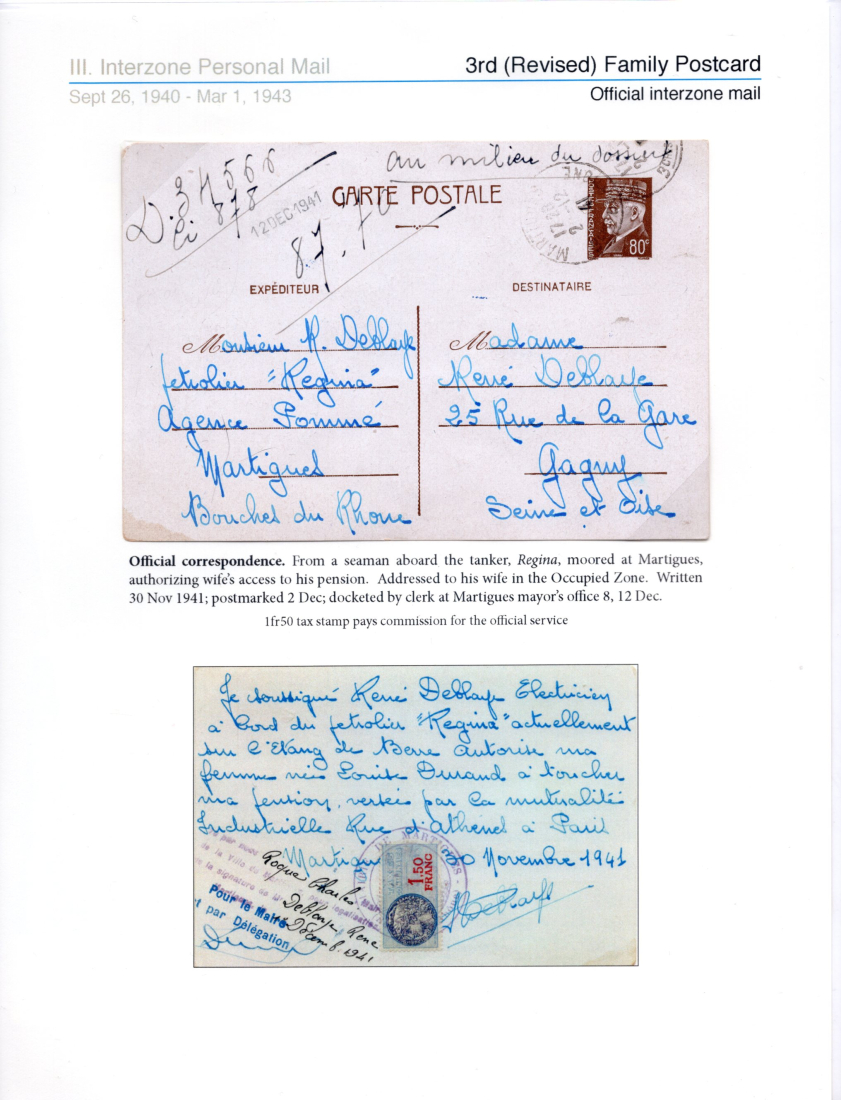 III. Interzone Personal Mail
3rd (Revised) Family Postcard
Sept 26, 1940 - Mar 1, 1943
Official interzone mail
au milieu du dossier
D. 34566
Ci 878
12 DEC 1941
87.70
CARTE POSTALE
80c
EXPÉDITEUR
DESTINATAIRE
Monsieur R. Deblaye
petrolier "Regina"
Agence Pommé
Martigues
Bouches du Rhone
Madame
René Deblaye
25 Rue de la Gare
Gagny
Seine et Oise
Official correspondence. From a seaman aboard the tanker, Regina, moored at Martigues,
authorizing wife's access to his pension. Addressed to his wife in the Occupied Zone. Written
30 Nov 1941; postmarked 2 Dec; docketed by clerk at Martigues mayor's office 8, 12 Dec.
1fr50 tax stamp pays commission for the official service
Je soussigné René Deblaye Electricien
à bord du petrolier "Regina" actuellement
sur l'Etang de Berre autorise ma
femme née Louise Durand à toucher
ma pension, versée par la mutualité
Industrielle Rue d'Athènes à Paris
Martigues 30 Novembre 1941
DE MARTIGUES
1.50
FRANC
de la Ville de
la signature de M
Roque Charles
Deblaye René
Pour le Maire
et par Délégation
1941